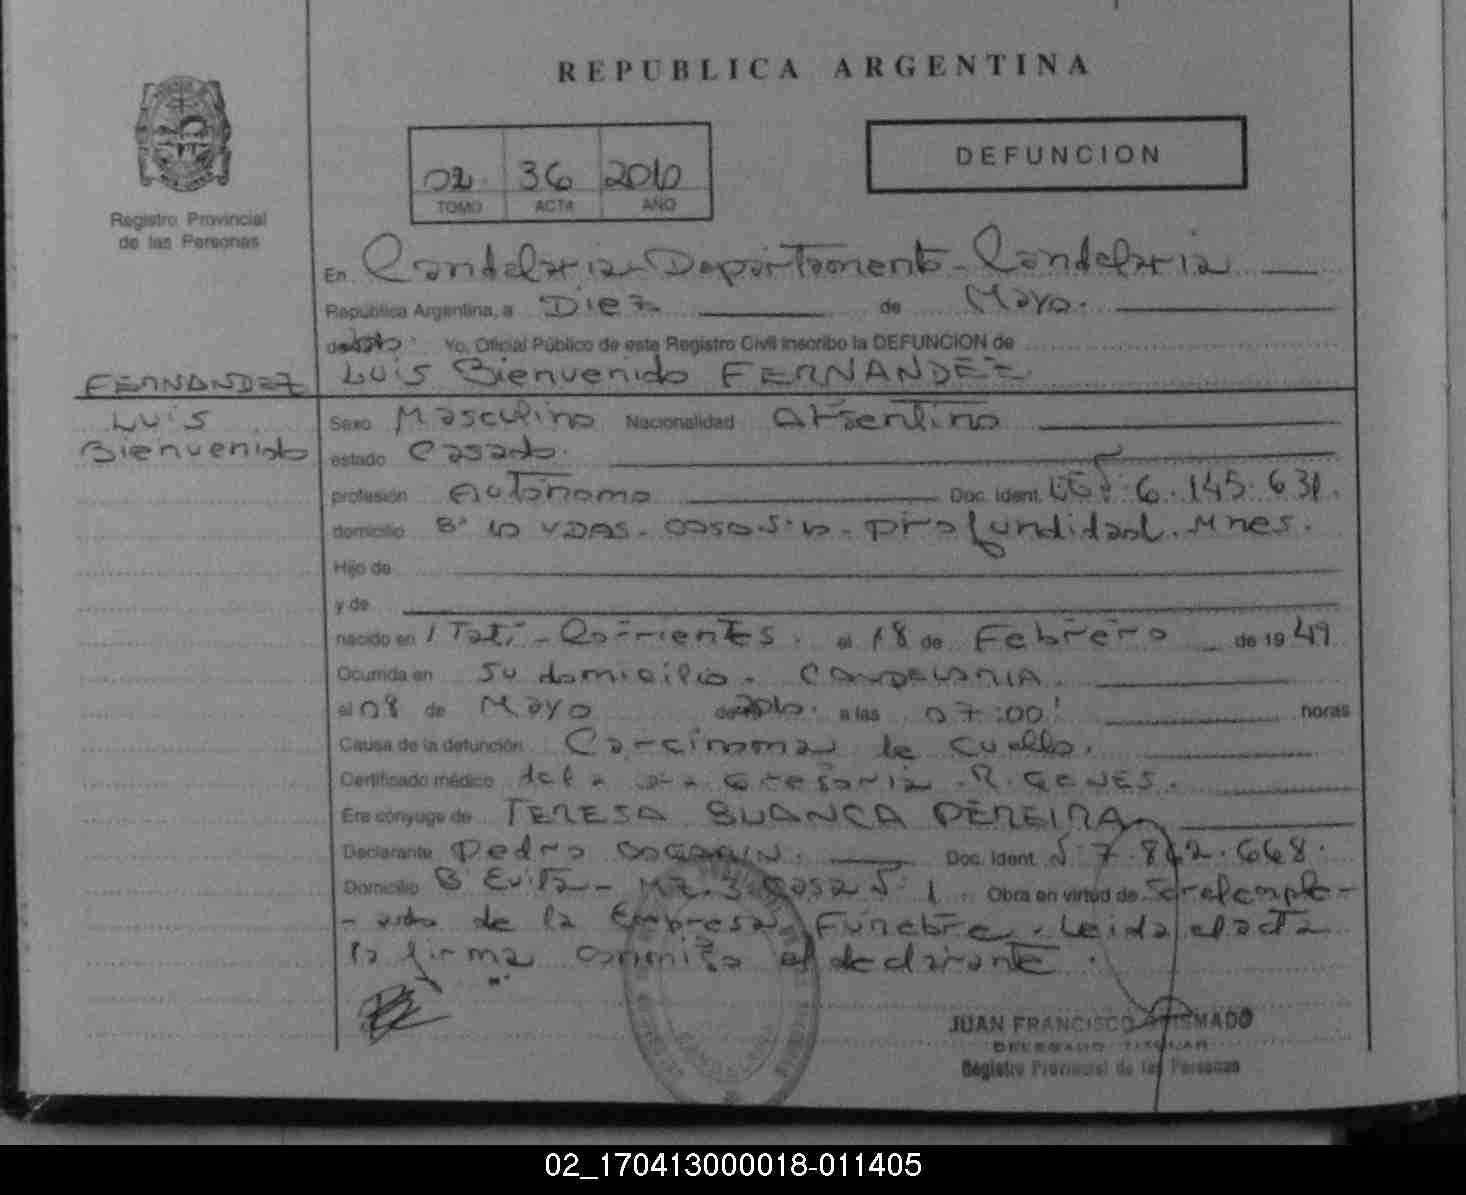 REPUBLICA ARGENTINA
DEFUNCION
02 36 2010
TOMO ACTA AÑO
Registro Provincial
de las Personas
En Candelaria - Departamento - Candelaria
República Argentina, a Diez de Mayo.
de 2010. Yo, Oficial Público de este Registro Civil inscribo la DEFUNCION de
Luis Bienvenido FERNANDEZ
FERNANDEZ
Luis
Bienvenido
Sexo Masculino Nacionalidad Argentino
estado Casado.
profesión Autónomo Doc. Ident. 6.145.631.
domicilio Bº 10 VDAS. casa Nº 10 - profundidad. Mnes.
Hijo de
y de
nacido en Itatí - Corrientes. el 18 de Febrero de 1949
Ocurrida en su domicilio. CANDELARIA.
el 08 de Mayo de 2010. a las 07:00' horas
Causa de la defunción Carcinoma de cuello.
Certificado médico de la Dra Gregoria R. GENES.
Era cónyuge de TERESA BLANCA PEREIRA
Declarante Pedro Doc. Ident. Nº 7.842.668.
Domicilio Bº Evita - Mz. 3. casa Nº 1. Obra en virtud de Ser el emple-
-ado de la Empresa Fúnebre. Leida el acta
la firma conmigo el declarante.
JUAN FRANCISCO
DELEGADO TITULAR
Registro Provincial de las Personas
02_170413000018-011405